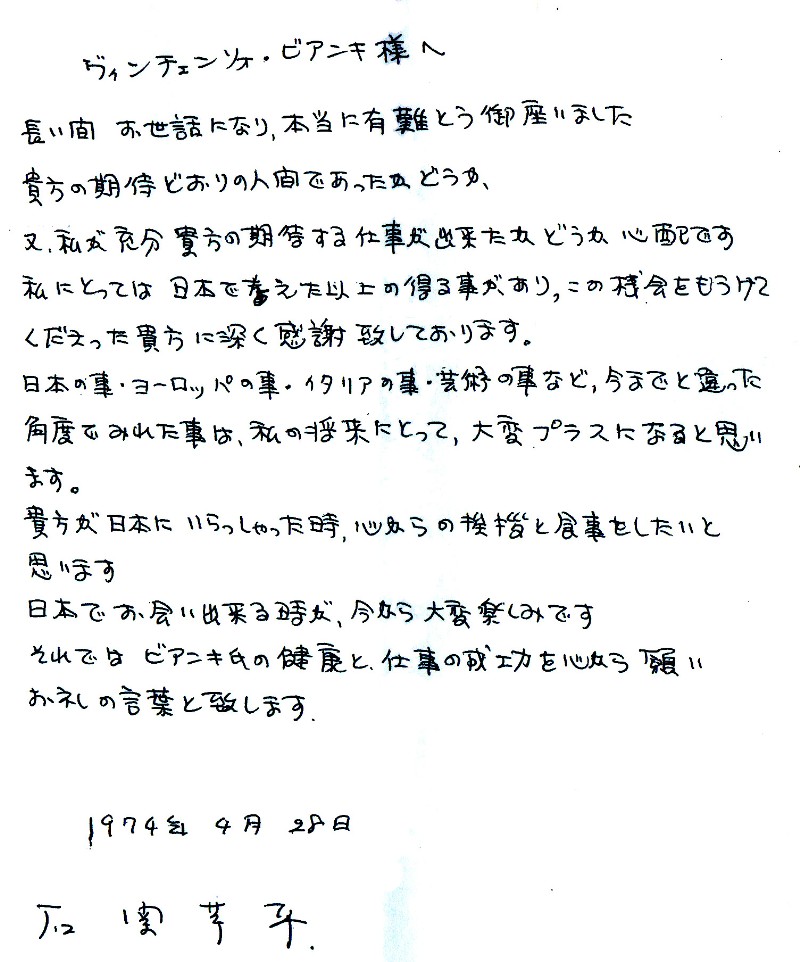 ヴィンチェンゾォ・ビアンキ様へ
長い間 お世話になり,本当に有難とう御座いました
貴方の期待どおりの人間であったかどうか、
又、私が充分貴方の期待する仕事が出来たかどうか心配です
私にとっては日本で考えた以上の得る事があり,この機会をもうけて
くださった貴方に深く感謝致しております。
日本の事・ヨーロッパの事・イタリアの事・芸術の事など,今までと違った
角度でみれた事は、私の将来にとって,大変プラスになると思い
ます。
貴方が日本にいらっしゃった時,心からの挨拶と食事をしたいと
思います
日本でお会い出来る時が,今から大変楽しみです
それでは ビアンキ氏の健康と、仕事の成功を心から願い
お礼の言葉と致します.
1974年 4月 28日
石関